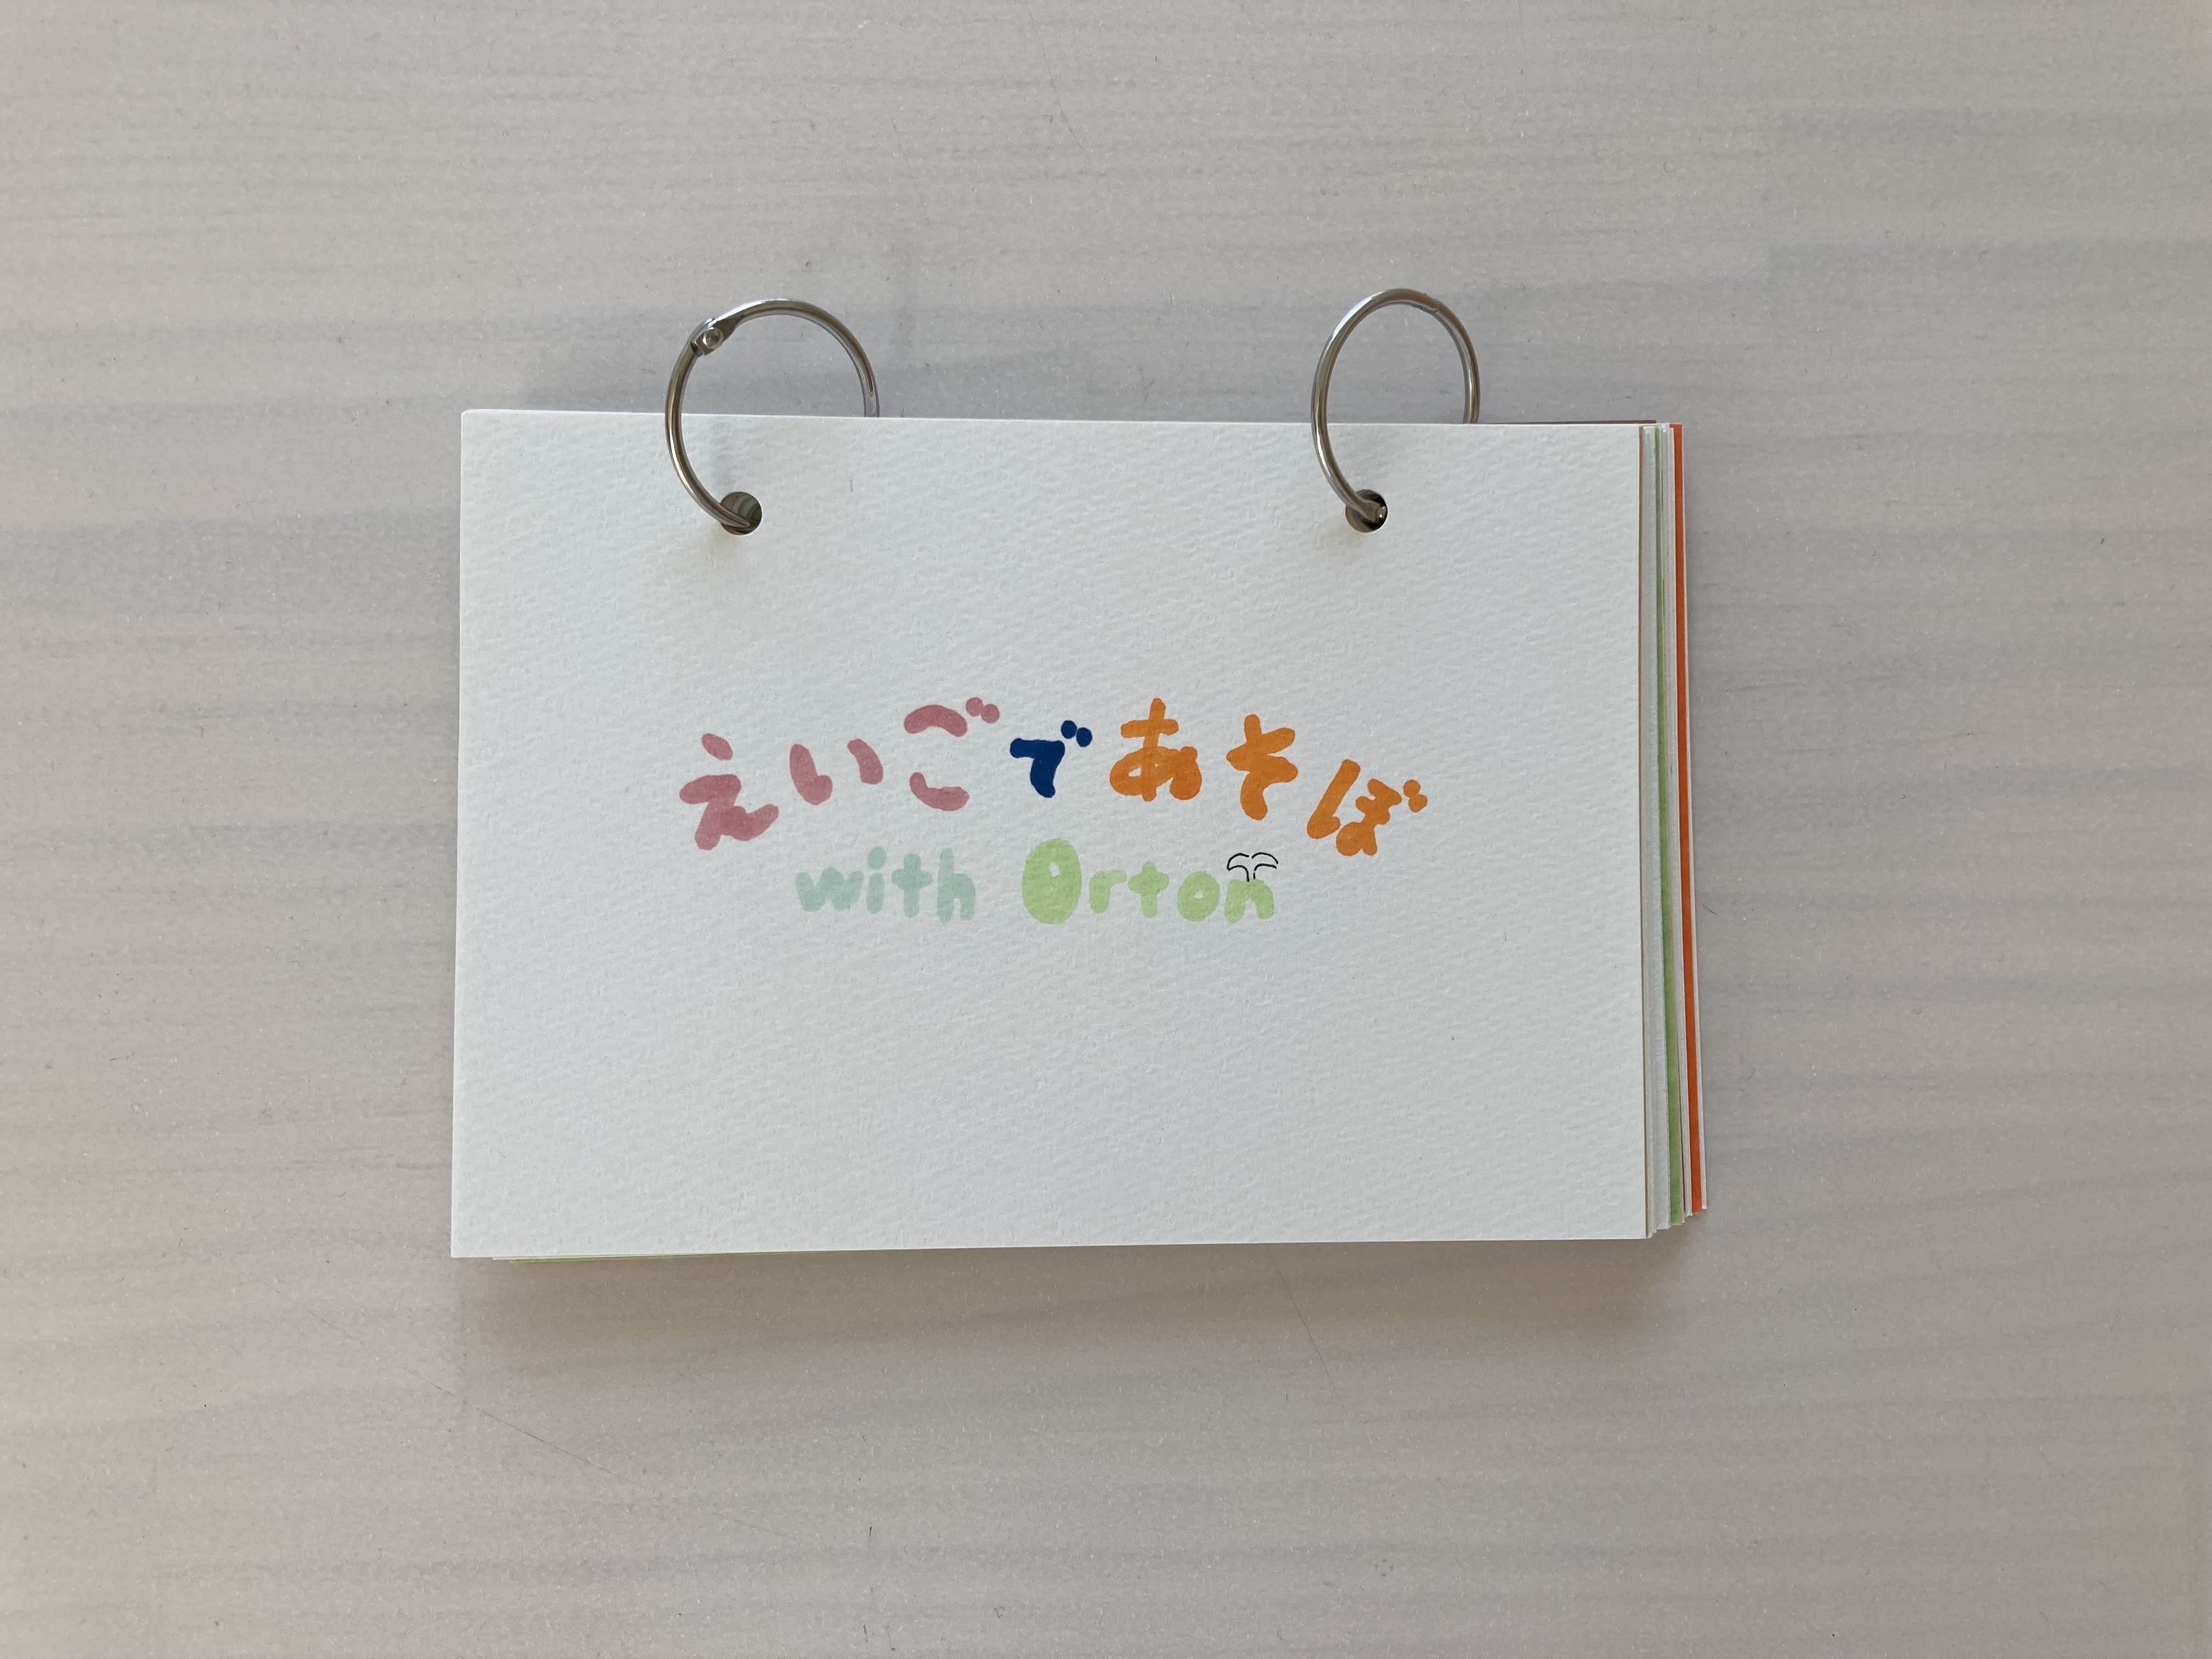 えいごであそぼ
with Orton